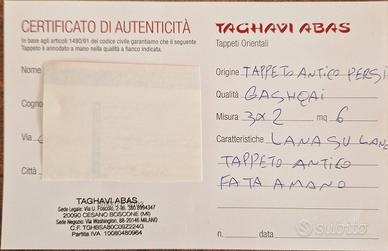 CERTIFICATO DI AUTENTICITÀ
In base agli articoli 1490/91 del codice civile garantiamo che il seguente
Tappeto è annodato a mano nella qualità a fianco indicata.
Nome
Cogno
Città
TAGHAVI ABAS
Sede Legale: Via U. Foscolo, 2-Tel.
20090 CESANO BOSCONE (MI)
Sede Negozio: Via Washington, 88-20146 MILANO
C.F. TGHBSA80C09Z224G
Partita IVA 10080480964
TAGHAVI ABAS
Tappeti Orientali
Origine TAPPETO ANTICO PERSI
Qualità GASHQAI
Misura 3x2 mq 6
Caratteristiche LANA SU LANA
TAPPETO ANTICO
FATA A MANO
n. data
subito